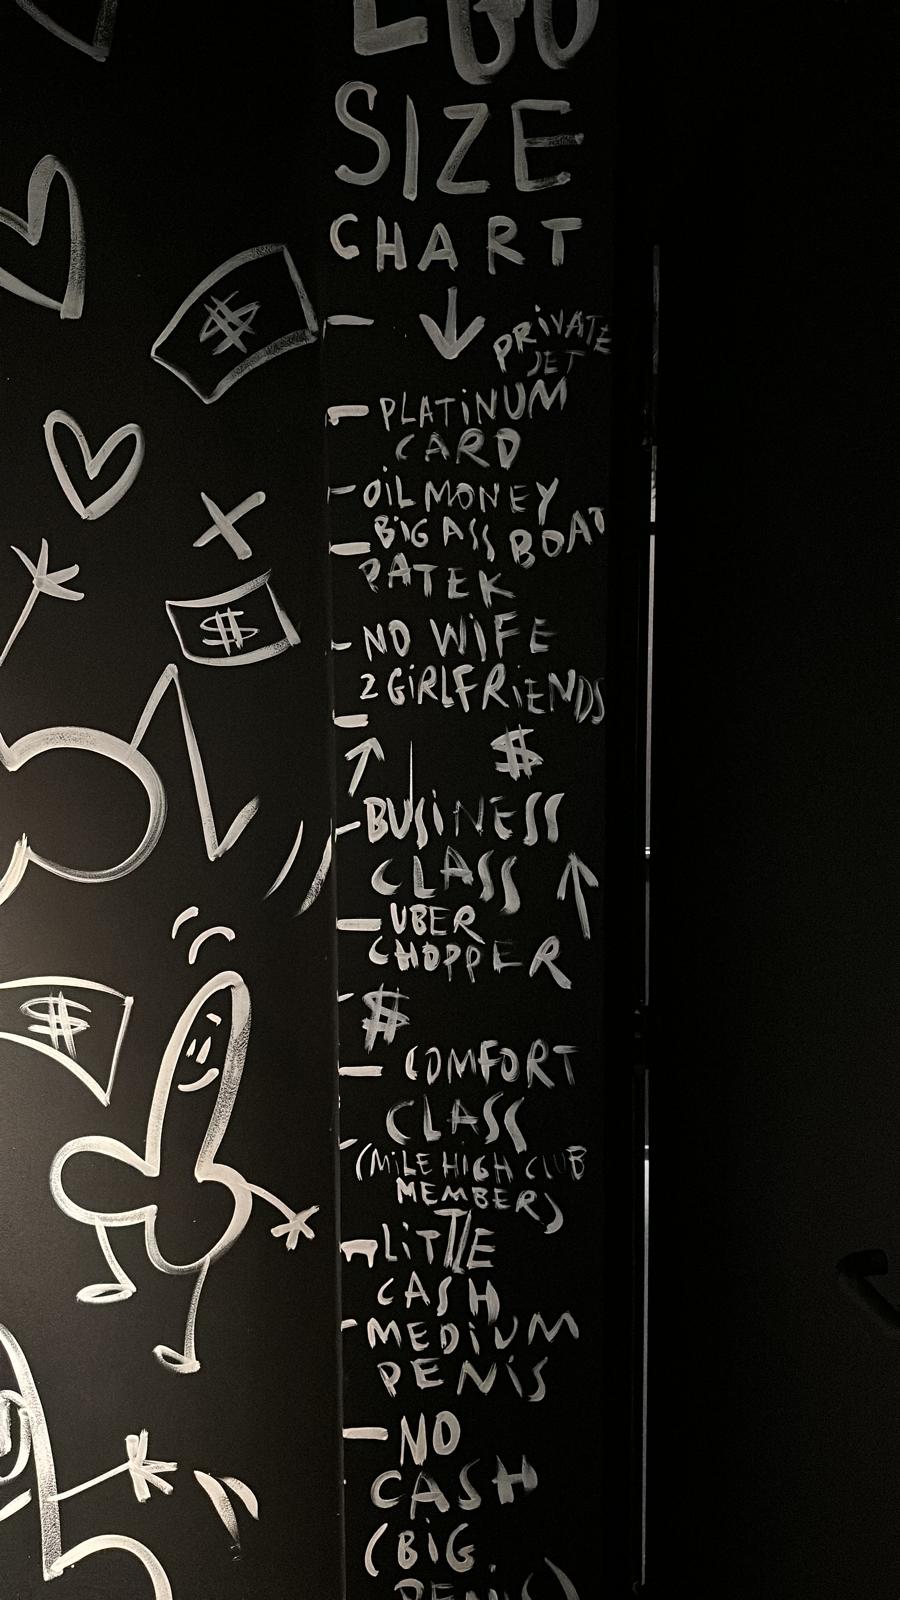 EGO
SIZE
CHART
PRiVATE
JET
PLATiNUM
CARD
OiL MONEY
BiG ASS BOAT
PATEK
NO WiFE
2 GiRLFRiENDS
$
BUSiNESS
CLASS
UBER
CHOPPER
$
COMFORT
CLASS
(MiLE HIGH CLUB
MEMBER)
LiTTLE
CASH
MEDiUM
PENiS
NO
CASH
(BiG
PENiS)
$
$
$